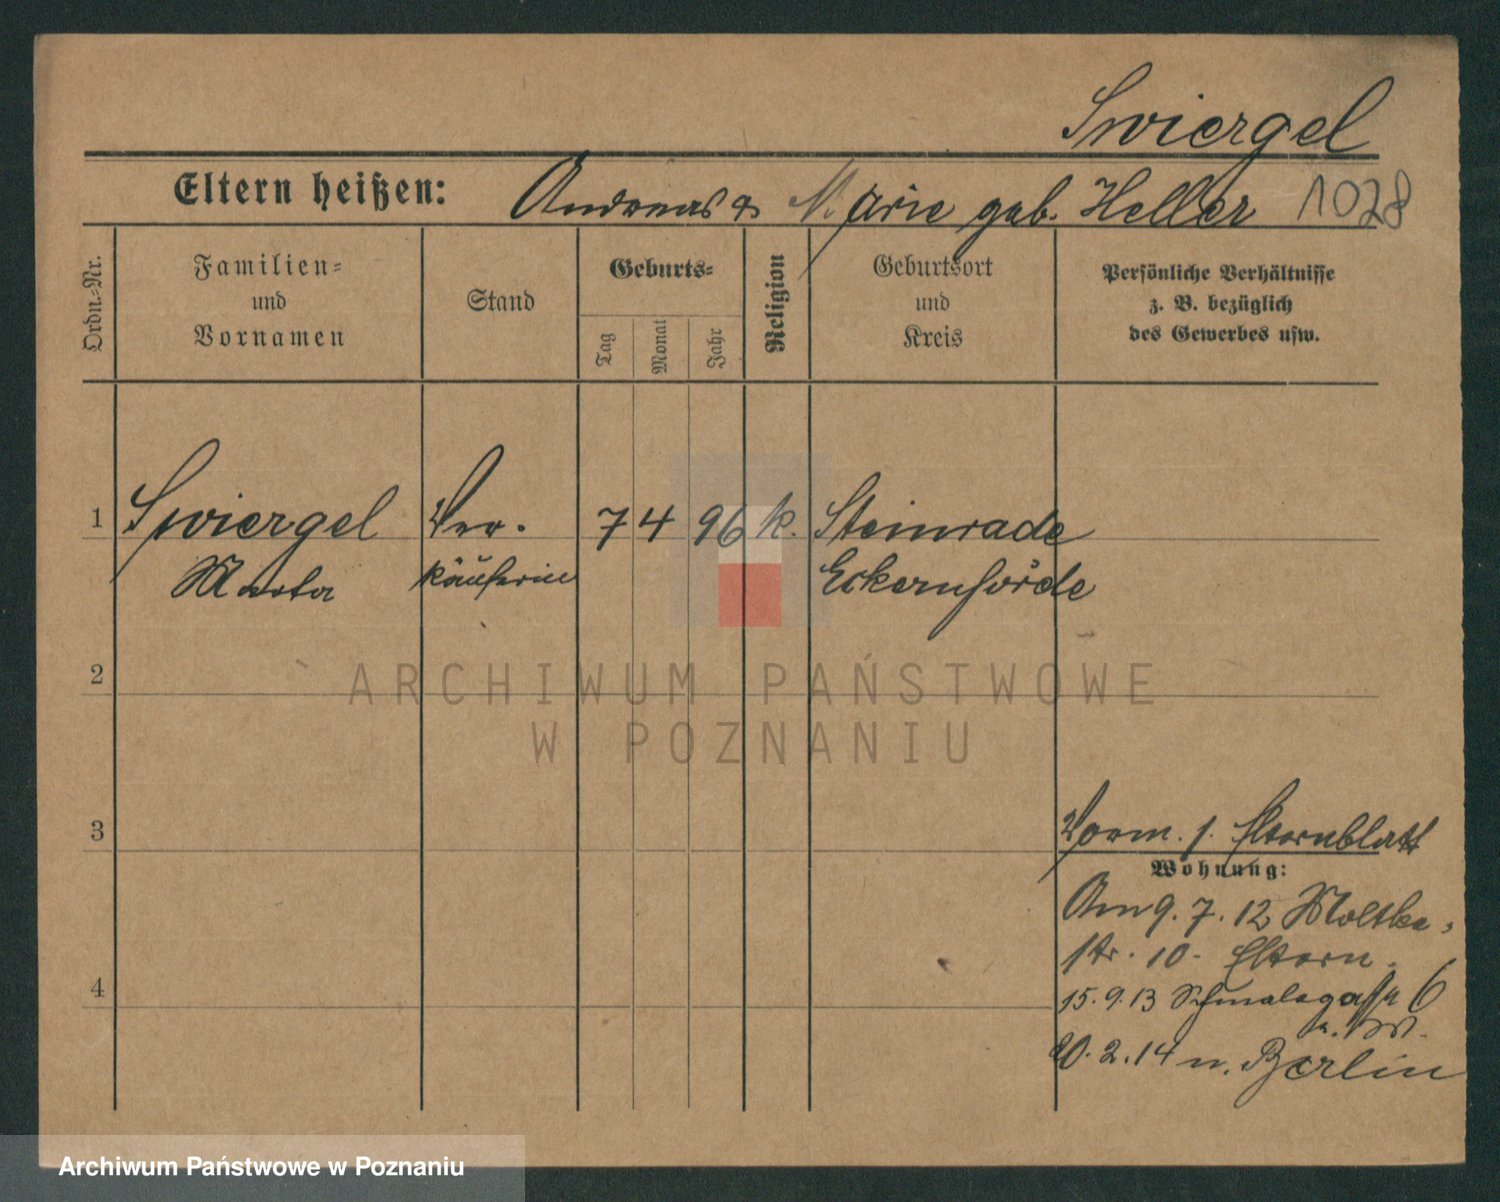 Swiergel
Eltern heißen: Andreas & Marie geb. Heller 1028
Ordn.-Nr.
Familien-
und
Vornamen
Stand
Geburts-
Tag
Monat
Jahr
Religion
Geburtsort
und
Kreis
Persönliche Verhältnisse
z. B. bezüglich
des Gewerbes usw.
1 Swiergel Ver- 7 4 96 k. Steinrade
Marta käuferin Eckernförde
2
ARCHIWUM PAŃSTWOWE
W POZNANIU
3
Vorm. s. Elternblatt
Wohnung:
Am 9. 7. 12 Moltke-
str. 10. Eltern.
4
15. 9. 13 Schmalegasse 6
20. 2. 14 n. Berlin
Archiwum Państwowe w Poznaniu